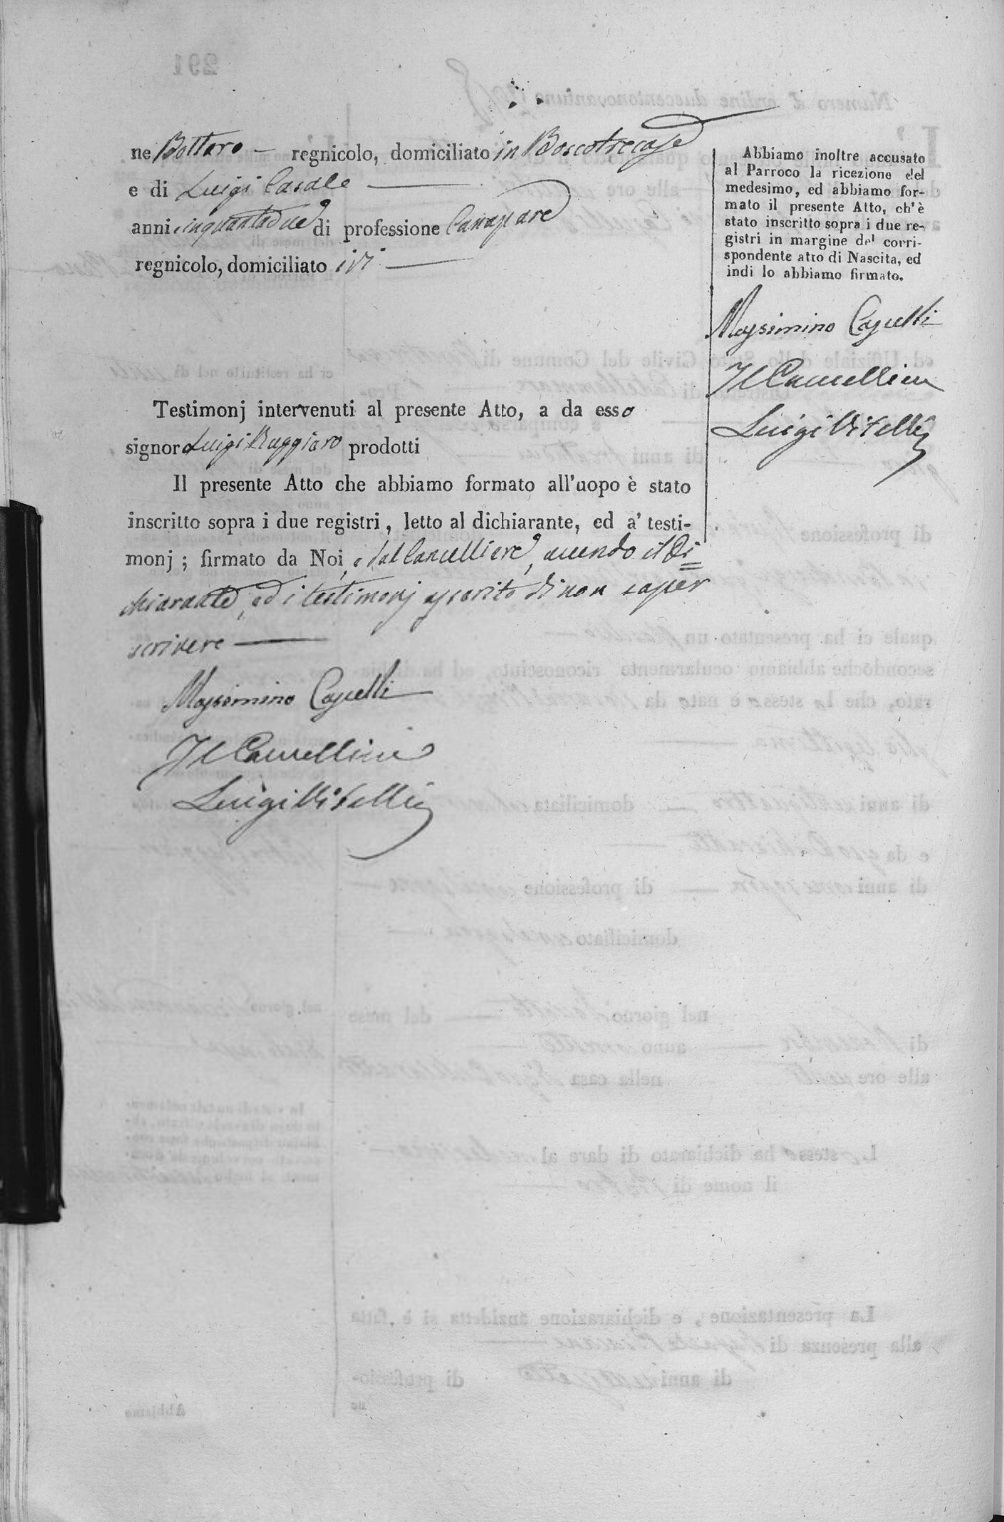 ne Bottaro — regnicolo, domiciliato in Boscotrecase
e di Luigi Casale —
anni cinquantadue di professione Canapare
regnicolo, domiciliato ivi —
Testimonj intervenuti al presente Atto, a da esso
signor Luigi Ruggiaro prodotti
Il presente Atto che abbiamo formato all'uopo è stato
inscritto sopra i due registri, letto al dichiarante, ed a' testi-
monj; firmato da Noi, e dal Cancelliere, avendo il Di=
chiarante, ed i testimonj asserito di non saper
scrivere —
Massimino
Il Cancelliere
Luigi Vitelli
Abbiamo inoltre accusato
al Parroco la ricezione del
medesimo, ed abbiamo for-
mato il presente Atto, ch'è
stato inscritto sopra i due re-
gistri in margine del corri-
spondente atto di Nascita, ed
indi lo abbiamo firmato.
Massimino
Il Cancelliere
Luigi Vitelli